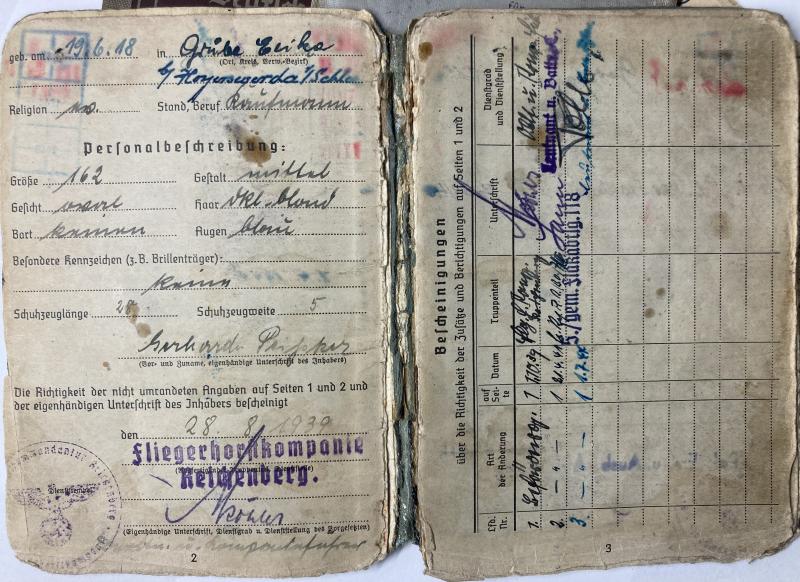 geb. am 19.6.18 in Grube Erika
(Ort, Kreis, Verw.-Bezirk)
b/Hoyerswerda/Schle.
Religion ev. Stand, Beruf Kaufmann
Personalbeschreibung:
Größe 162 Gestalt mittel
Gesicht oval Haar dkl.-blond
Bart keinen Augen blau
Besondere Kennzeichen (z. B. Brillenträger):
keine
Schuhzeuglänge 28 Schuhzeugweite 5
Gerhard
(Vor- und Zuname, eigenhändige Unterschrift des Inhabers)
Die Richtigkeit der nicht umrandeten Angaben auf Seiten 1 und 2 und
der eigenhändigen Unterschrift des Inhabers bescheinigt
den 28.8.1939
Fliegerhorstkompanie
Reichenberg.
Dienststempel
Köhler
(Eigenhändige Unterschrift, Dienstgrad u. Dienststellung des Vorgesetzten)
u. Kompanieführer
2
Bescheinigungen
über die Richtigkeit der Zusätze und Berichtigungen auf Seiten 1 und 2
Lfd. Nr.
Art der Änderung
auf Seite
Datum
Truppenteil
Unterschrift
Dienstgrad und Dienststellung
1. Beförderung. 1
Köhler
2. — " — 1
Leutnant u. Battr.
3. — " — 1 1.7.
5./gem. Flakabtlg. 118
3